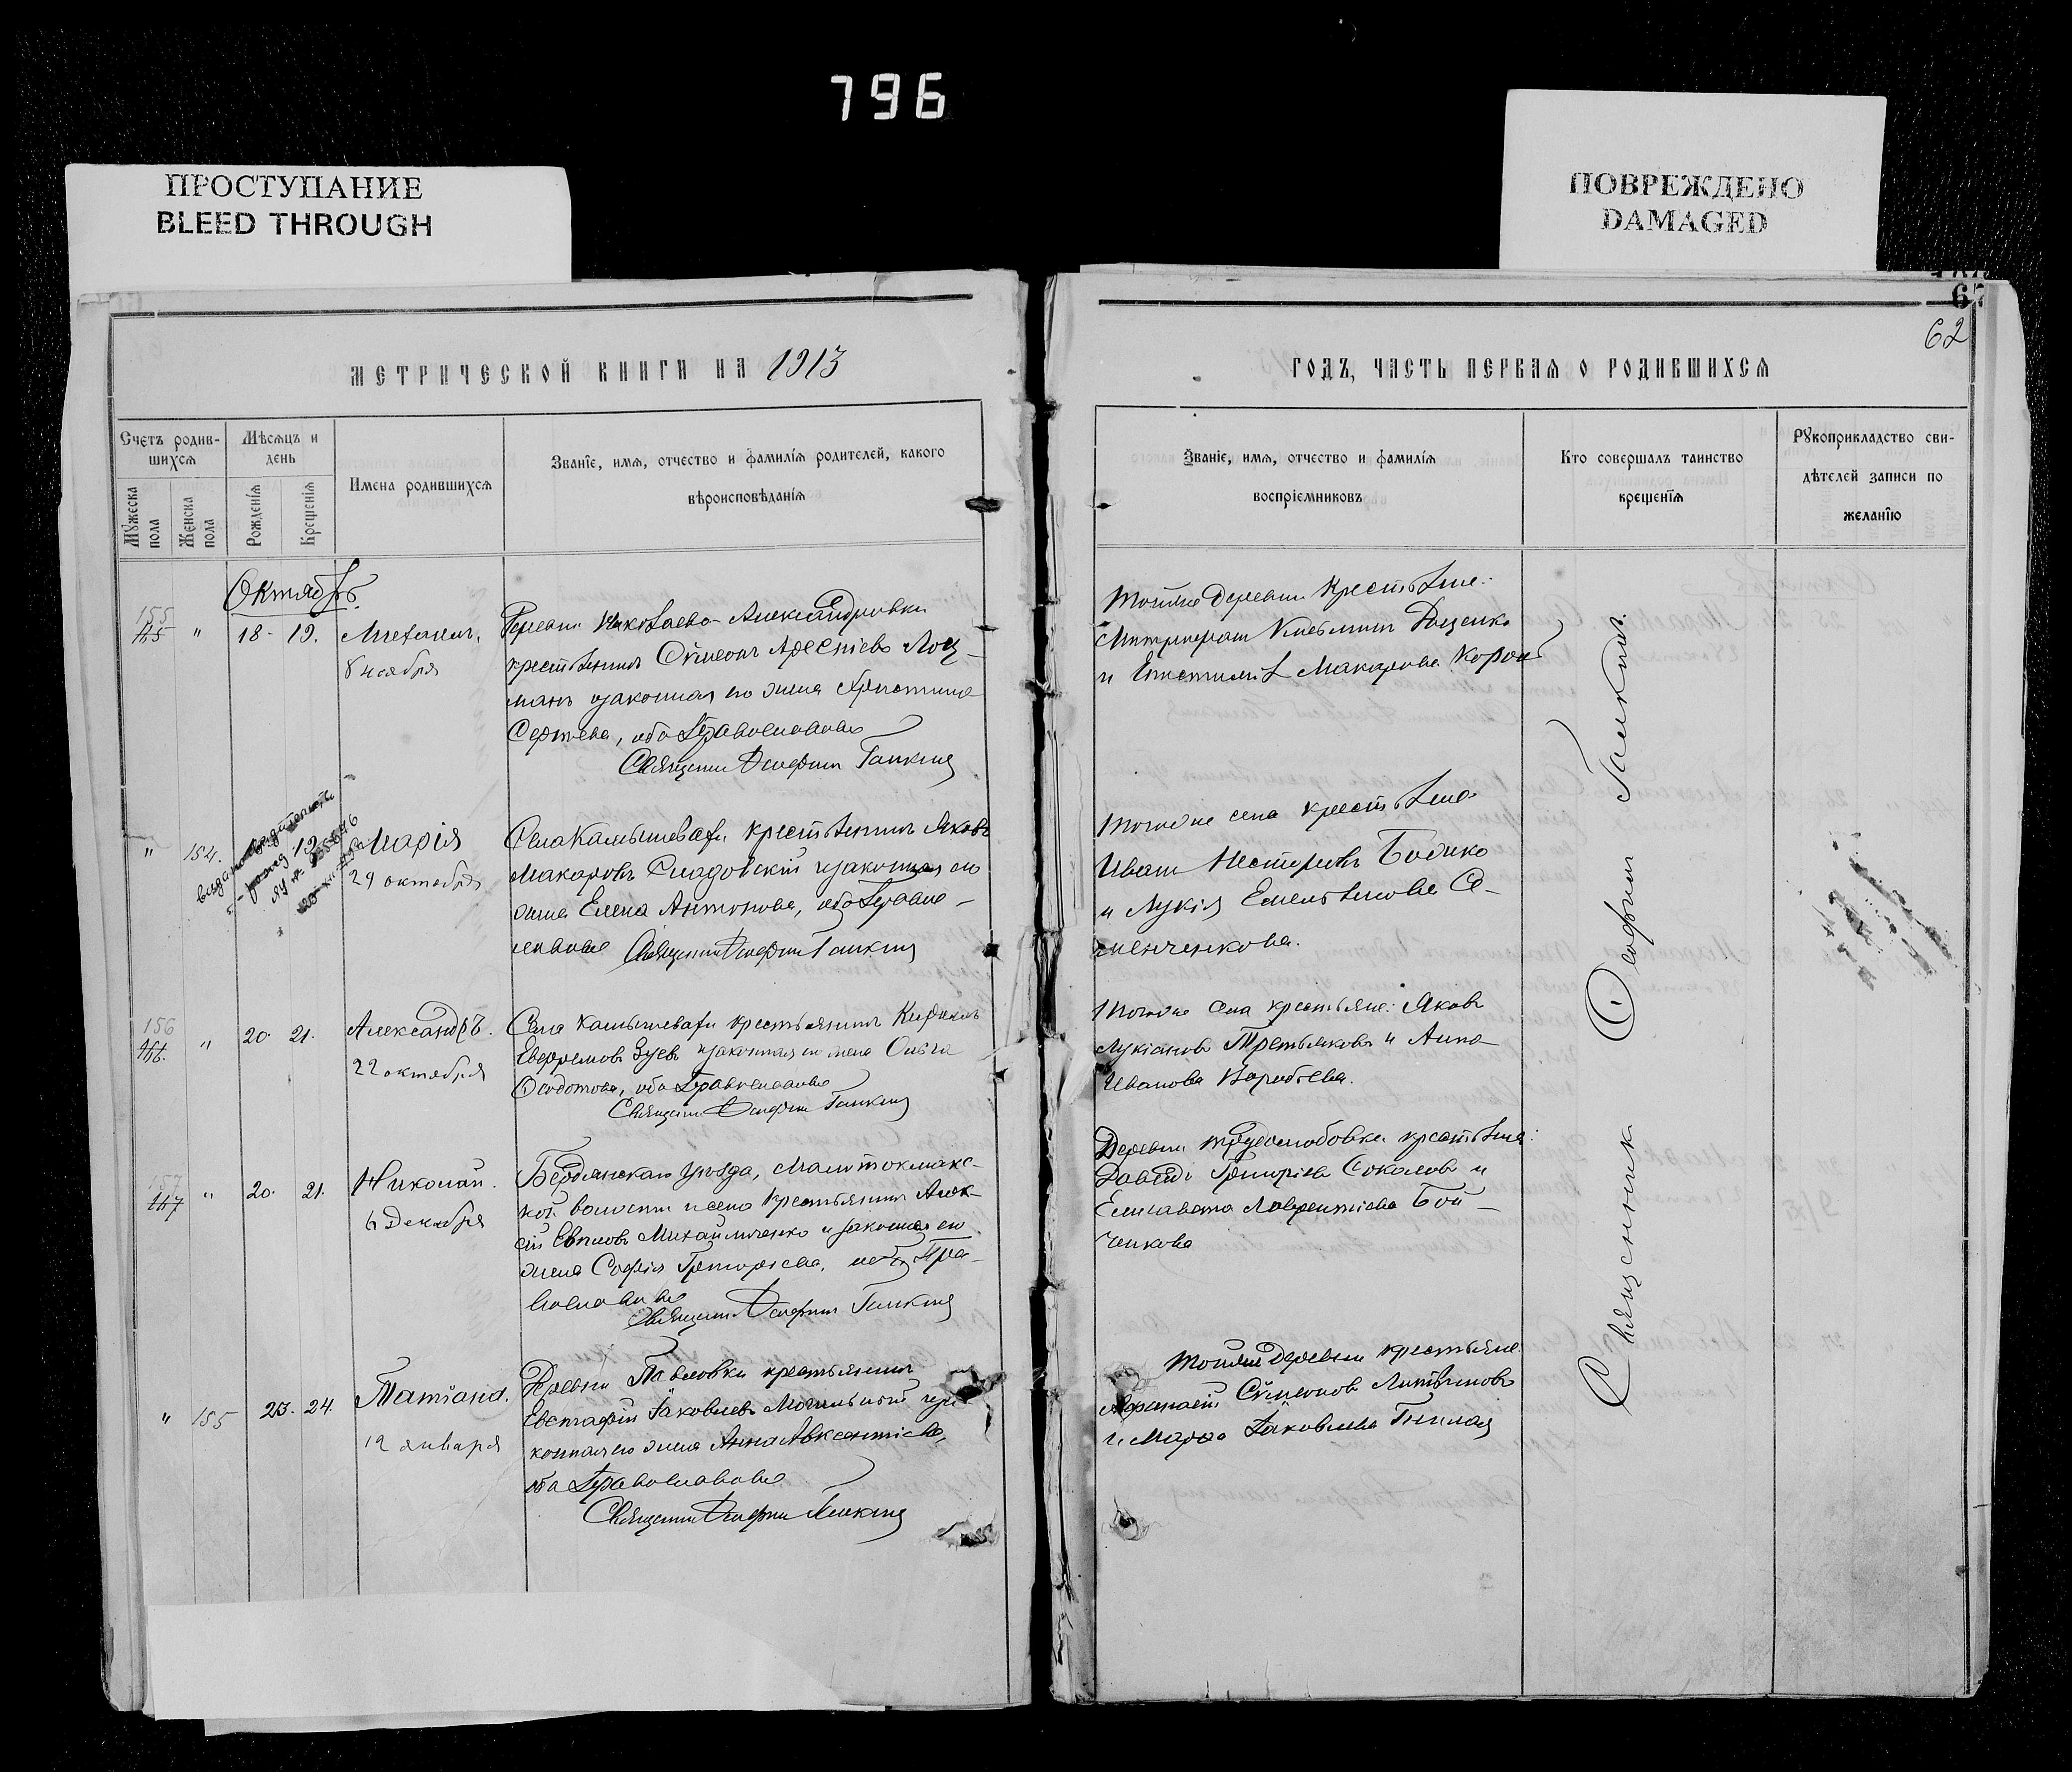 796
ПРОСТУПАНИЕ
BLEED THROUGH
ПОВРЕЖДЕНО
DAMAGED
67
62
МЕТРИЧЕСКОЙ КНИГИ НА 1913
ГОДЪ, ЧАСТЬ ПЕРВАЯ О РОДИВШИХСЯ
Счетъ родив-
шихся
Мѣсяцъ и
день
Мужеска пола
Женска пола
Рожденія
Крещенія
Имена родившихся
Званіе, имя, отчество и фамилія родителей, какого
вѣроисповѣданія
Званіе, имя, отчество и фамилія
воспріемниковъ
Кто совершалъ таинство
крещенія
Рукоприкладство сви-
дѣтелей записи по
желанію
Октябрь.
155
" 18. 19. Михаилъ.
8 ноября
Деревни Николаево-Александровки
крестьянинъ Сѷмеонъ Арсеніевъ Лоц-
манъ и законная его жена Христина
Сергіева, оба православные
Священникъ Ѳеофилъ Галкинъ
Той же деревни крестьяне:
Митрофанъ Доценко
и Макарова
" 154. 19 Марія
29 октября
Села Камышевахи крестьянинъ Яковъ
Макаровъ Сладовскій и законная его
жена Елена Антонова, оба право-
славные Священникъ Ѳеофилъ Галкинъ
Того же села крестьяне
Иванъ Несторовъ Бойко
и Лукія Емельянова Се-
менченкова.
156
" 20. 21. Александръ.
22 октября
Села Камышевахи крестьянинъ
Евфремовъ Зуевъ и законная его жена Ольга
Ѳеодотова, оба православные
Священникъ Ѳеофилъ Галкинъ
Того же села крестьяне: Яковъ
Лукіановъ Третьяковъ и Анна
Иванова Воробьева.
157
" 20. 21. Николай.
6 Декабря
Бердянскаго уѣзда, Малотокмакс-
кой волости и села крестьянинъ Алек-
сій Михайличенко и законная его
жена Софія Григоріева, оба пра-
вославные
Священникъ Ѳеофилъ Галкинъ
Деревни Трудолюбовки крестьяне:
Давидъ Григоріевъ Соколовъ и
Елисавета Лаврентіева Бой-
ченкова
" 155 23. 24. Татіана.
12 января
Деревни Павловки крестьянинъ
Евстафій Іаковлевъ и за-
конная его жена Анна Авксентіева,
оба православные
Священникъ Ѳеофилъ Галкинъ
Той же деревни крестьяне:
Аѳанасій Сѷмеоновъ Литвиновъ
и Марѳа Іаковлева Гнилая
Священникъ Ѳеофилъ Галкинъ.